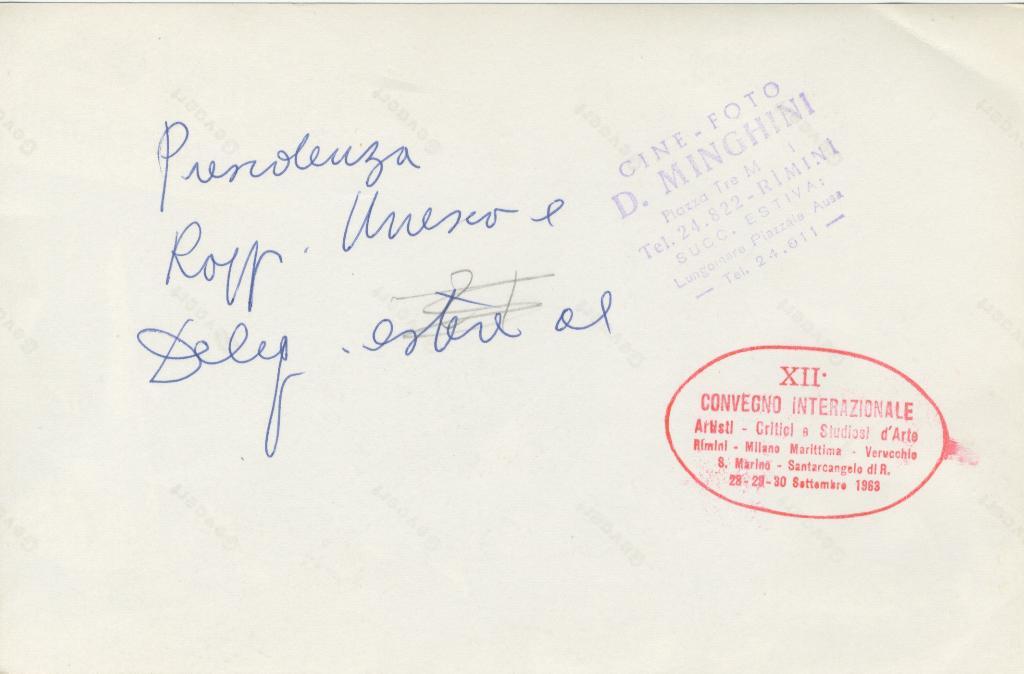 Presidenza
Rapp. Unesco e
Deleg. estere al
CINE-FOTO
D. MINGHINI
Piazza Tre M i
Tel. 24.822 - RIMINI
SUCC. ESTIVA:
Lungomare Piazzale Ausa
— Tel. 24.011 —
XII·
CONVEGNO INTERAZIONALE
Artisti - Critici e Studiosi d'Arte
Rimini - Milano Marittima - Verucchio
S. Marino - Santarcangelo di R.
28-29-30 Settembre 1963